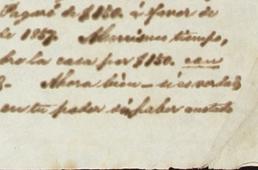 Pagaré de $150. á favor de
de 1857. Al mismo tiempo,
la casa por $150. con
Ahora bien – si es verdad
en tu poder sin haber